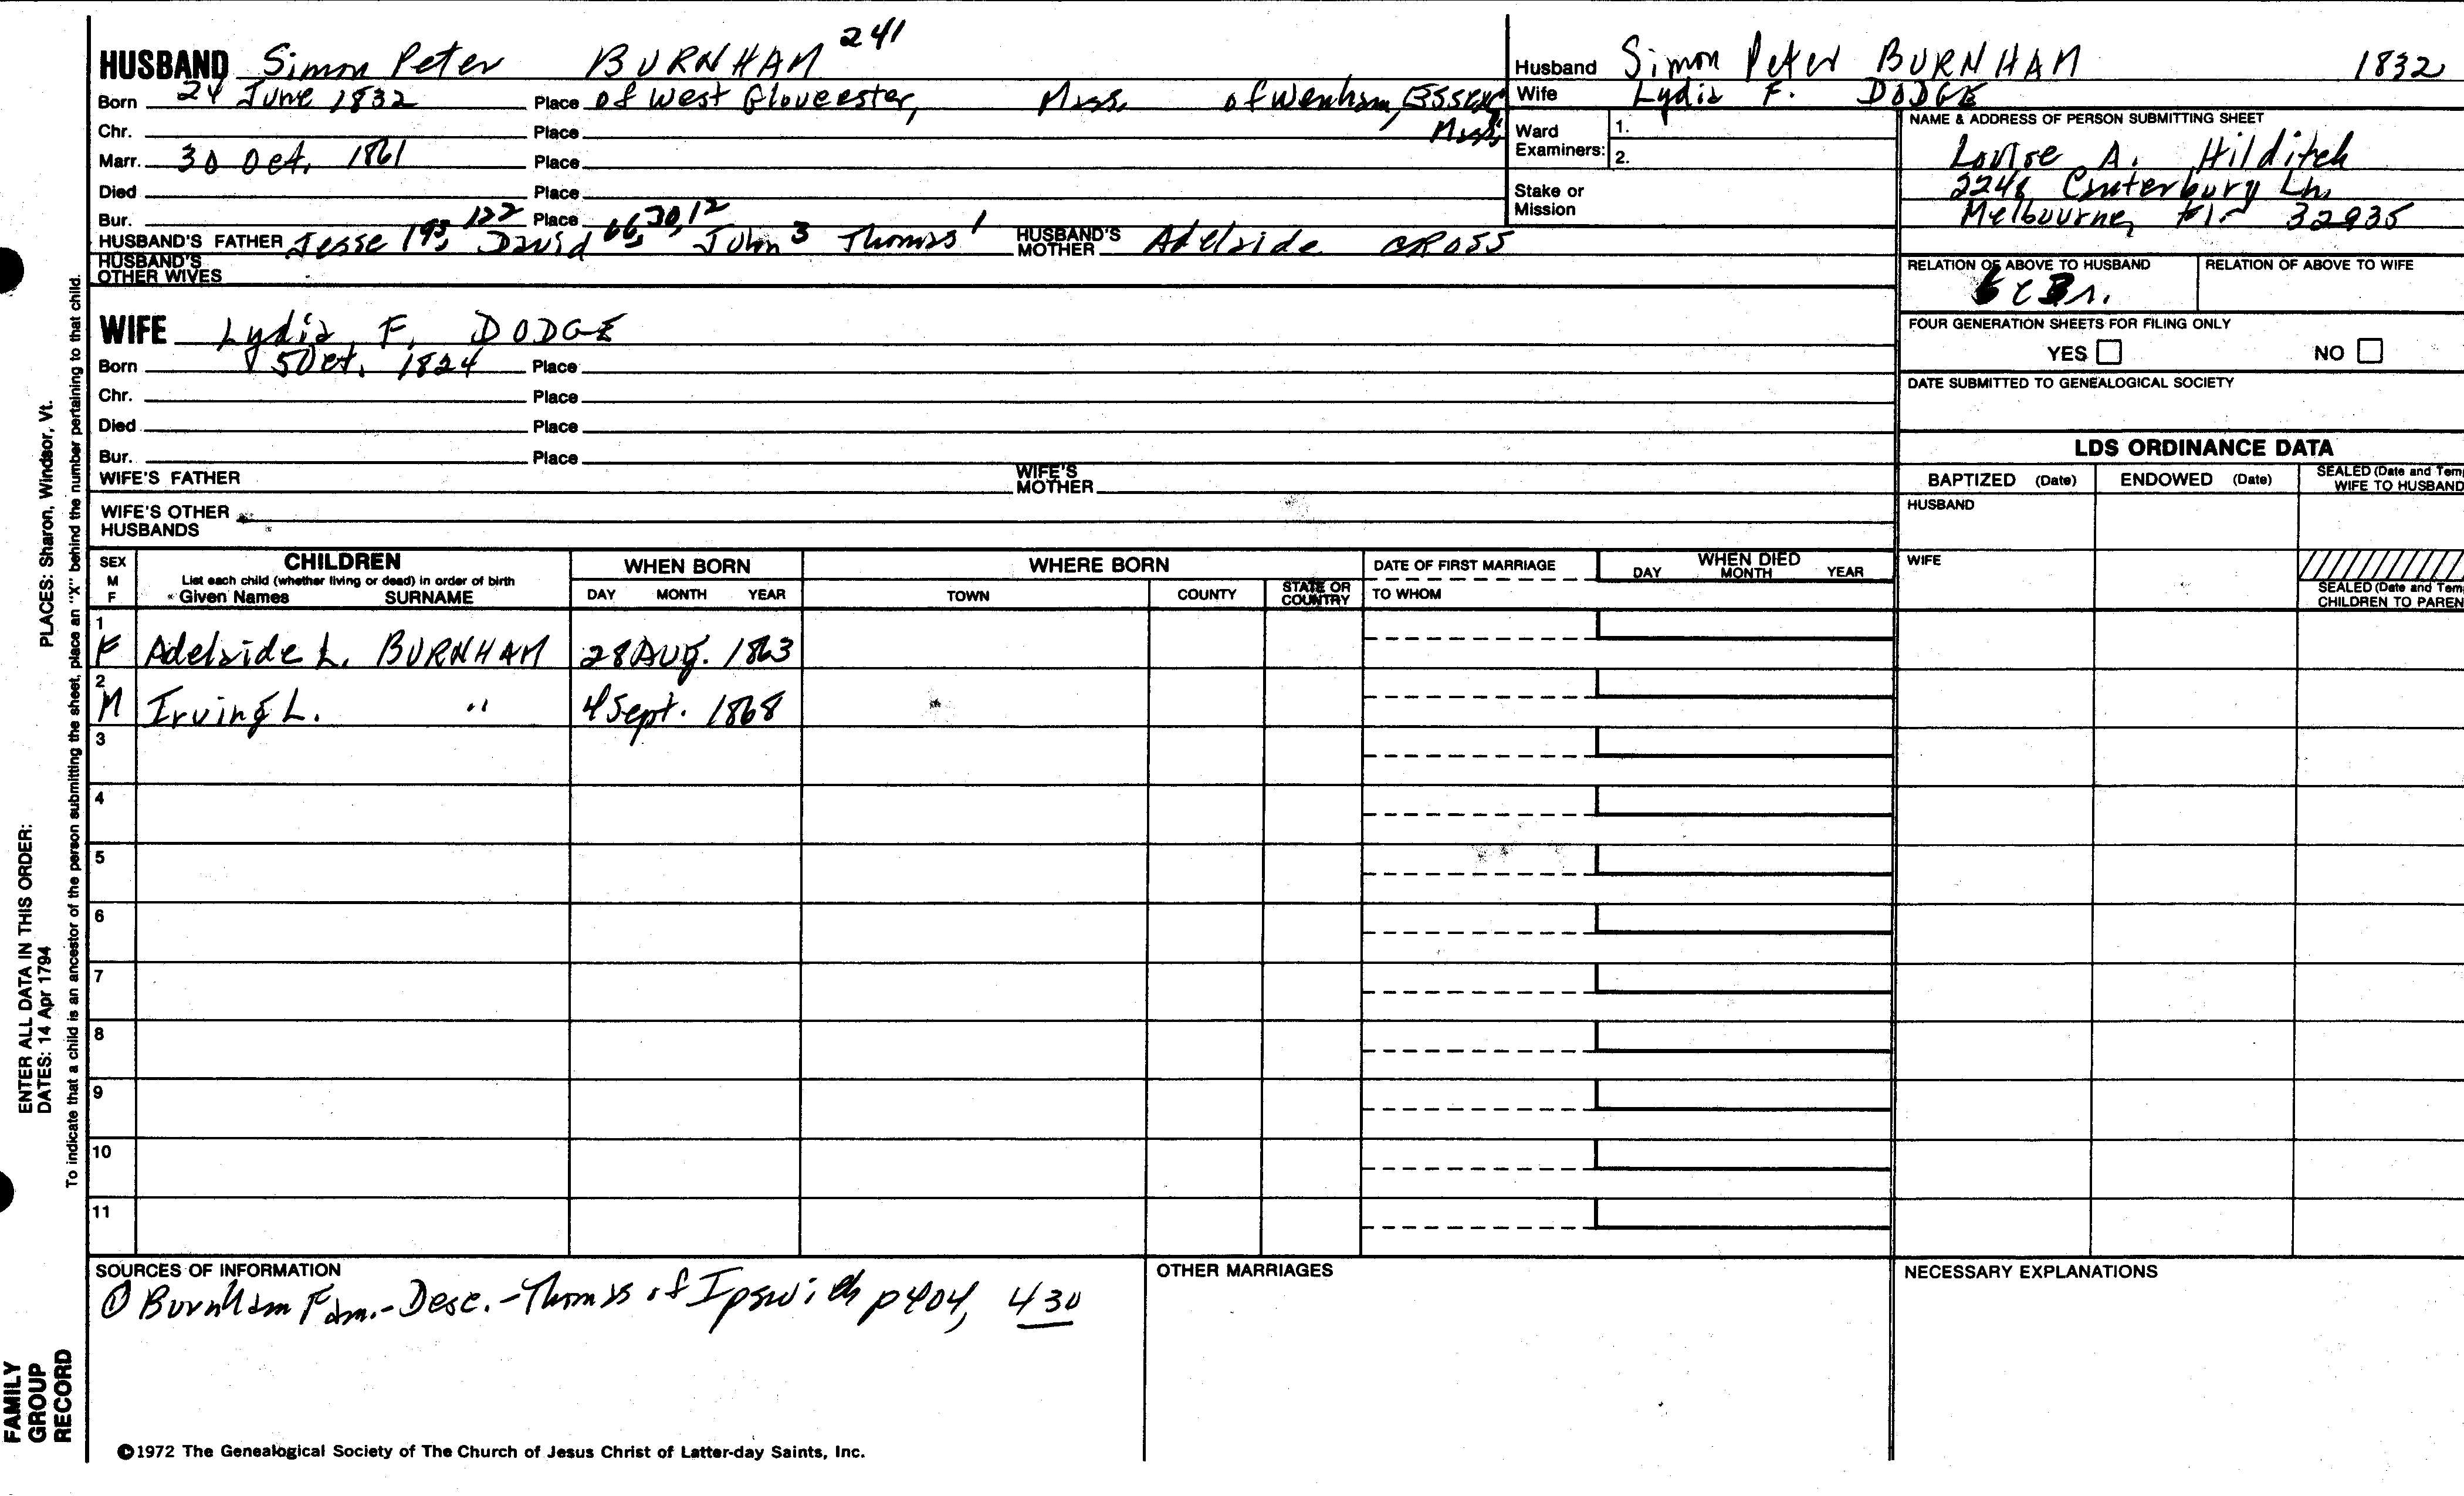 HUSBAND Simon Peter BURNHAM 241
Born 24 June 1832 Place of West Gloucester, Mass. of Wenham, Essex, Mass.
Chr. Place
Marr. 30 Oct. 1861 Place
Died Place
Bur. Place
HUSBAND'S FATHER Jesse 193, 122 David 66, 30, 12 John 3 Thomas 1 HUSBAND'S MOTHER Adelaide CROSS
HUSBAND'S OTHER WIVES
WIFE Lydia F. DODGE
Born 5 Oct. 1824 Place
Chr. Place
Died Place
Bur. Place
WIFE'S FATHER WIFE'S MOTHER
WIFE'S OTHER HUSBANDS
Husband Simon Peter BURNHAM 1832
Wife Lydia F. DODGE
Ward Examiners: 1.
2.
Stake or Mission
NAME & ADDRESS OF PERSON SUBMITTING SHEET
Louise A. Hilditch
2248 Canterbury Ln.
Melbourne, Fla 32935
RELATION OF ABOVE TO HUSBAND RELATION OF ABOVE TO WIFE
FOUR GENERATION SHEETS FOR FILING ONLY
YES NO
DATE SUBMITTED TO GENEALOGICAL SOCIETY
LDS ORDINANCE DATA
BAPTIZED (Date) ENDOWED (Date) SEALED (Date and Tem
WIFE TO HUSBAND
HUSBAND
WIFE
SEALED (Date and Tem
CHILDREN TO PAREN
SEX M F CHILDREN WHEN BORN WHERE BORN DATE OF FIRST MARRIAGE WHEN DIED
List each child (whether living or dead) in order of birth
Given Names SURNAME DAY MONTH YEAR TOWN COUNTY STATE OR COUNTRY TO WHOM DAY MONTH YEAR
1 F Adelaide L. BURNHAM 28 Aug. 1863
2 M Irving L. " 4 Sept. 1868
3
4
5
6
7
8
9
10
11
SOURCES OF INFORMATION
① Burnham Fam.-Desc.-Thomas of Ipswich p404, 430
OTHER MARRIAGES
NECESSARY EXPLANATIONS
©1972 The Genealogical Society of The Church of Jesus Christ of Latter-day Saints, Inc.
ENTER ALL DATA IN THIS ORDER:
DATES: 14 Apr 1794 PLACES: Sharon, Windsor, Vt.
To indicate that a child is an ancestor of the person submitting the sheet, place an "X" behind the number pertaining to that child.
FAMILY
GROUP
RECORD